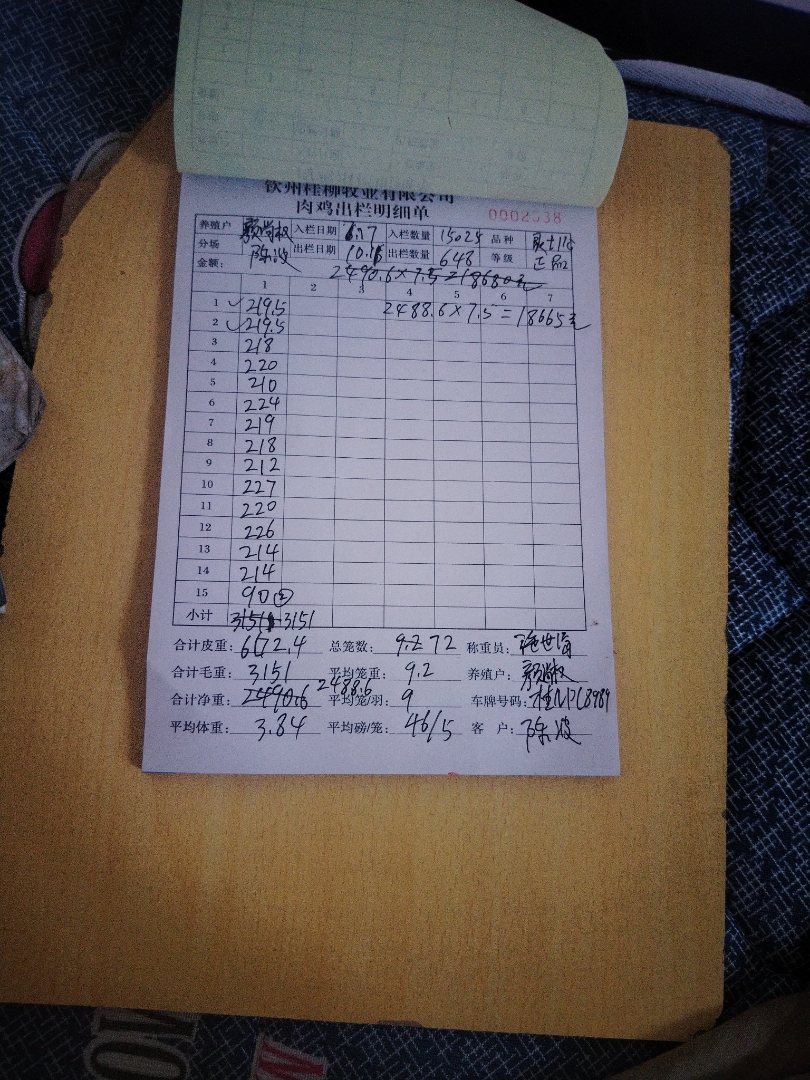 钦州桂柳牧业有限公司
肉鸡出栏明细单 0002538
养殖户 入栏日期 6.17 入栏数量 15025 品种
分场 陈波 出栏日期 10.16 出栏数量 648 等级 正品
金额: 2490.6×7.5=18680元
1 2 3 4 5 6 7
1 219.5 2488.6×7.5=18665元
2 219.5
3 218
4 220
5 210
6 224
7 219
8 218
9 212
10 227
11 220
12 226
13 214
14 214
15 90②
小计 3151 3151
合计皮重: 6172.4 总笼数: 9.2 72 称重员:
合计毛重: 3151 平均笼重: 9.2 养殖户:
合计净重: 2490.6 2488.6 平均笼/羽: 9 车牌号码:
平均体重: 3.84 平均磅/笼: 46/5 客户: 陈波